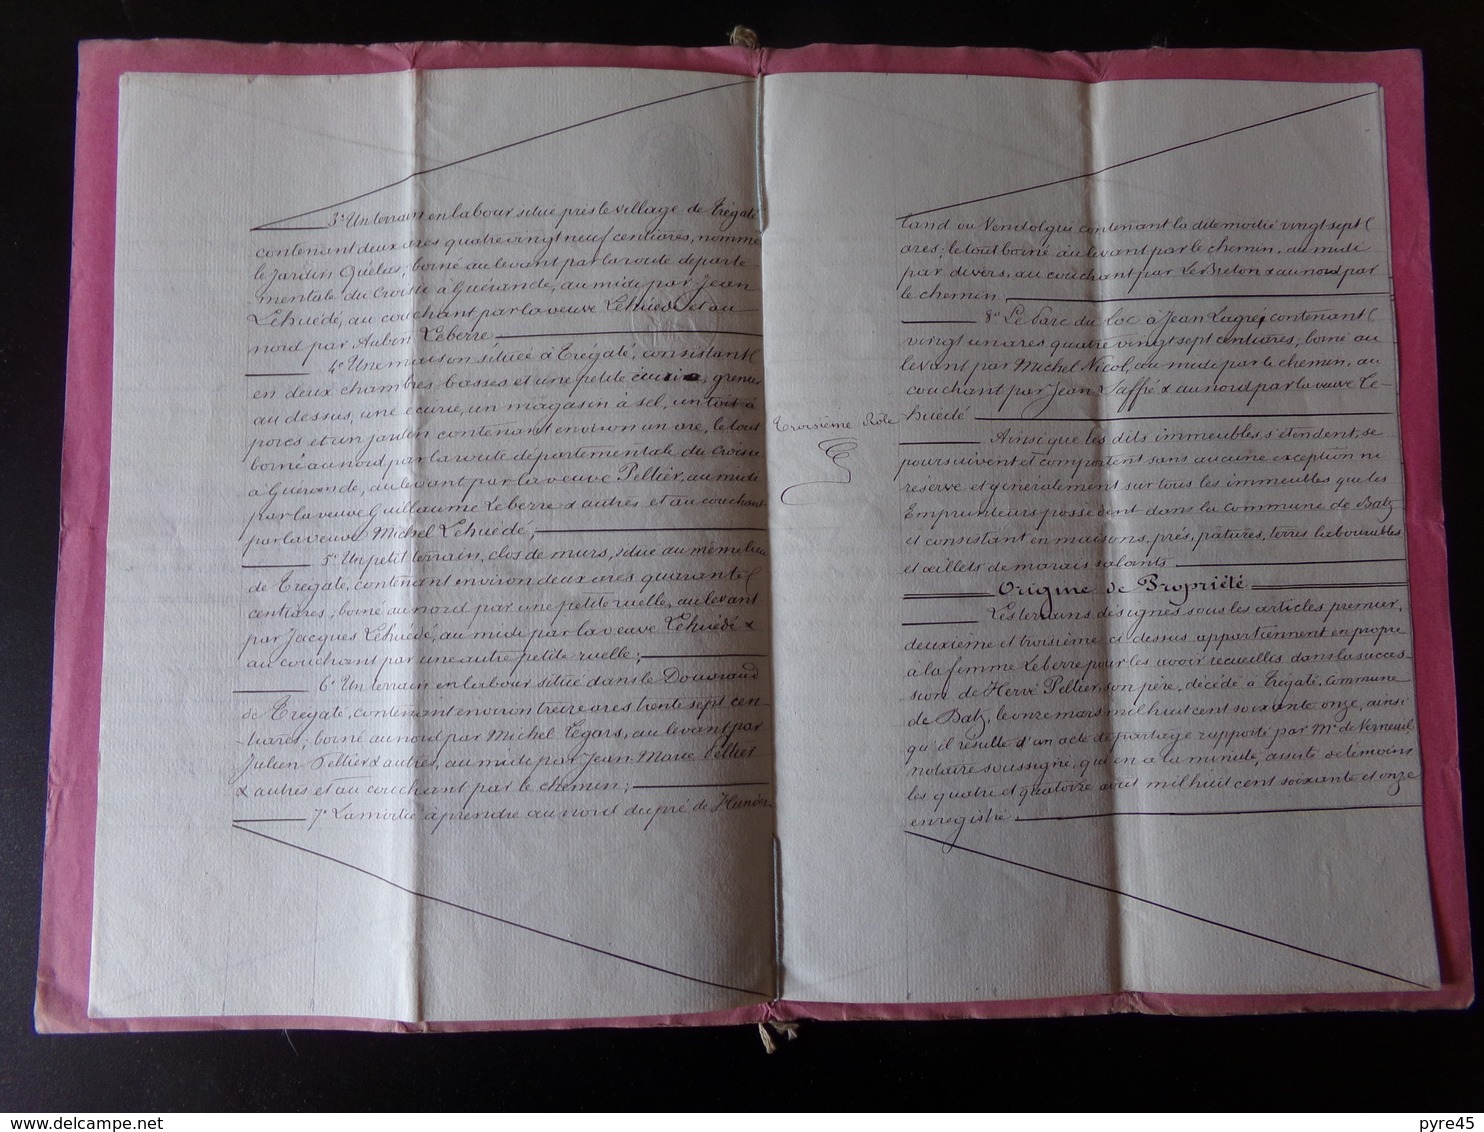 3° Un terrain en labour situé près le village de Trégaté
contenant deux ares quatre vingt neuf centiares, nommé
le Jardin Quélus; borné au levant par la route départe-
mentale du Croisic à Guérande, au midi par Jean
Lehuédé, au couchant par la veuve Lehuédé et au
nord par Aubin Leberre
4° Une maison située à Trégaté, consistant
en deux chambres basses et une petite cuisine, grenier
au dessus, une écurie, un magasin à sel, un toit à
porcs et un jardin contenant environ un are, le tout
borné au nord par la route départementale du Croisic
à Guérande, au levant par la veuve Peltier, au midi
par la veuve Guillaume Leberre & autres et au couchant
par la veuve Michel Lehuédé;
5° Un petit terrain, clos de murs, situé au même lieu
de Trégaté, contenant environ deux ares quarante
centiares; borné au nord par une petite ruelle, au levant
par Jacques Lehuédé, au midi par la veuve Lehuédé &
au couchant par une autre petite ruelle;
6° Un terrain en labour situé dans le Doussaud
de Trégaté, contenant environ treize ares trente sept cen-
tiares; borné au nord par Michel Legars, au levant par
Julien Peltier & autres, au midi par Jean Marie Peltier
& autres et au couchant par le chemin;
7° La moitié à prendre au nord du pré de
Troisième Rôle
land ou Vendolqui contenant la dite moitié vingt sept
ares; le tout borné au levant par le chemin, au midi
par divers, au couchant par Le Breton & au nord par
le chemin
8° Le Parc du Loc à Jean Lagré, contenant
vingt un ares quatre vingt sept centiares; borné au
levant par Michel Nicol, au midi par le chemin, au
couchant par Jean Saffré & au nord par la veuve Le-
huédé
Ainsi que les dits immeubles s'étendent, se
poursuivent et comportent sans aucune exception ni
réserve et généralement sur tous les immeubles que les
Emprunteurs possèdent dans la commune de Batz
et consistant en maisons, prés, pâtures, terres labourables
et œillets de marais salants
Origine de Propriété
Les terrains désignés sous les articles premier,
deuxième et troisième ci dessus appartiennent en propre
à la femme Leberre pour les avoir recueillis dans la succes-
sion de Hervé Peltier, son père, décédé à Trégaté, commune
de Batz, le onze mars mil huit cent soixante onze, ainsi
qu'il résulte d'un acte de partage rapporté par Me de Verneuil
notaire soussigné, qui en a la minute, assisté de témoins
les quatre et quatorze août mil huit cent soixante et onze
enregistré
delcampe.net
pyre45